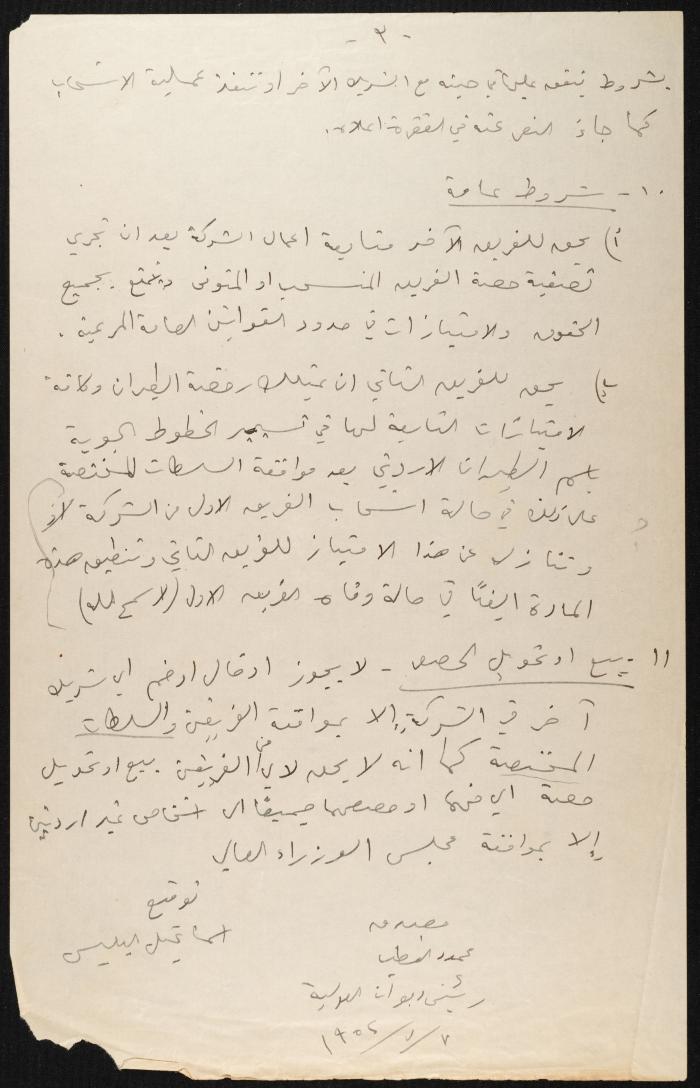 - ٣ -
بشروط يتفق عليها في حينه مع الشريك الآخر او تنفذ عملية الانسحاب
كما جاء النص عنه في الفقرة اعلاه.
١٠ - شروط عامة
أ) يحق للفريق الآخر متابعة اعمال الشركة بعد ان تجري
تصفية حصة الفريق المنسحب او المتوفى ويتمتع بجميع
الحقوق والامتيازات في حدود القوانين العامة المرعية.
ب) يحق للفريق الثاني ان يمتلك رخصة الطيران وكافة
الامتيازات التابعة لها في تسيير الخطوط الجوية
باسم الطيران الاردني بعد موافقة السلطات المختصة
على ذلك في حالة انسحاب الفريق الاول من الشركة
وتنازل عن هذا الامتياز للفريق الثاني وتنطبق هذه
المادة ايضًا في حالة وفاة الفريق الاول (لا سمح الله)
؟
١١ - بيع او تحويل الحصص - لا يجوز ادخال او ضم اي شريك
آخر في الشركة إلا بموافقة الفريقين والسلطات
المختصة كما انه لا يحق لاي من الفريقين بيع او تحويل
حصة اي منهما او حصصهما جميعًا الى اشخاص غير اردنيين
إلا بموافقة مجلس الوزراء العالي
توقيع
اسماعيل البلبيسي
مصدق
محمود
رئيس ديوان